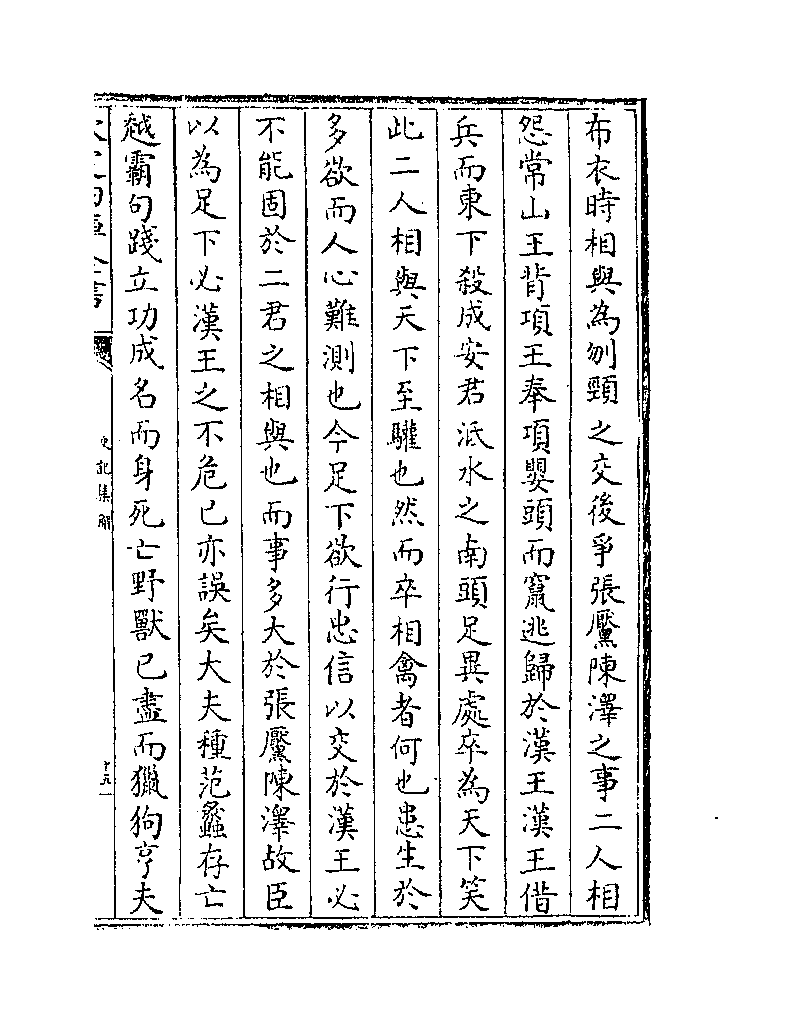 布衣時相與為刎頸之交後爭張黶陳澤之事二人相
怨常山王背項王奉項嬰頭而竄逃歸於漢王漢王借
兵而東下殺成安君泜水之南頭足異處卒為天下笑
此二人相與天下至驩也然而卒相禽者何也患生於
多欲而人心難測也今足下欲行忠信以交於漢王必
不能固於二君之相與也而事多大於張黶陳澤故臣
以為足下必漢王之不危已亦誤矣大夫種范蠡存亡
越霸句踐立功成名而身死亡野獸已盡而獵狗亨夫
史記集解